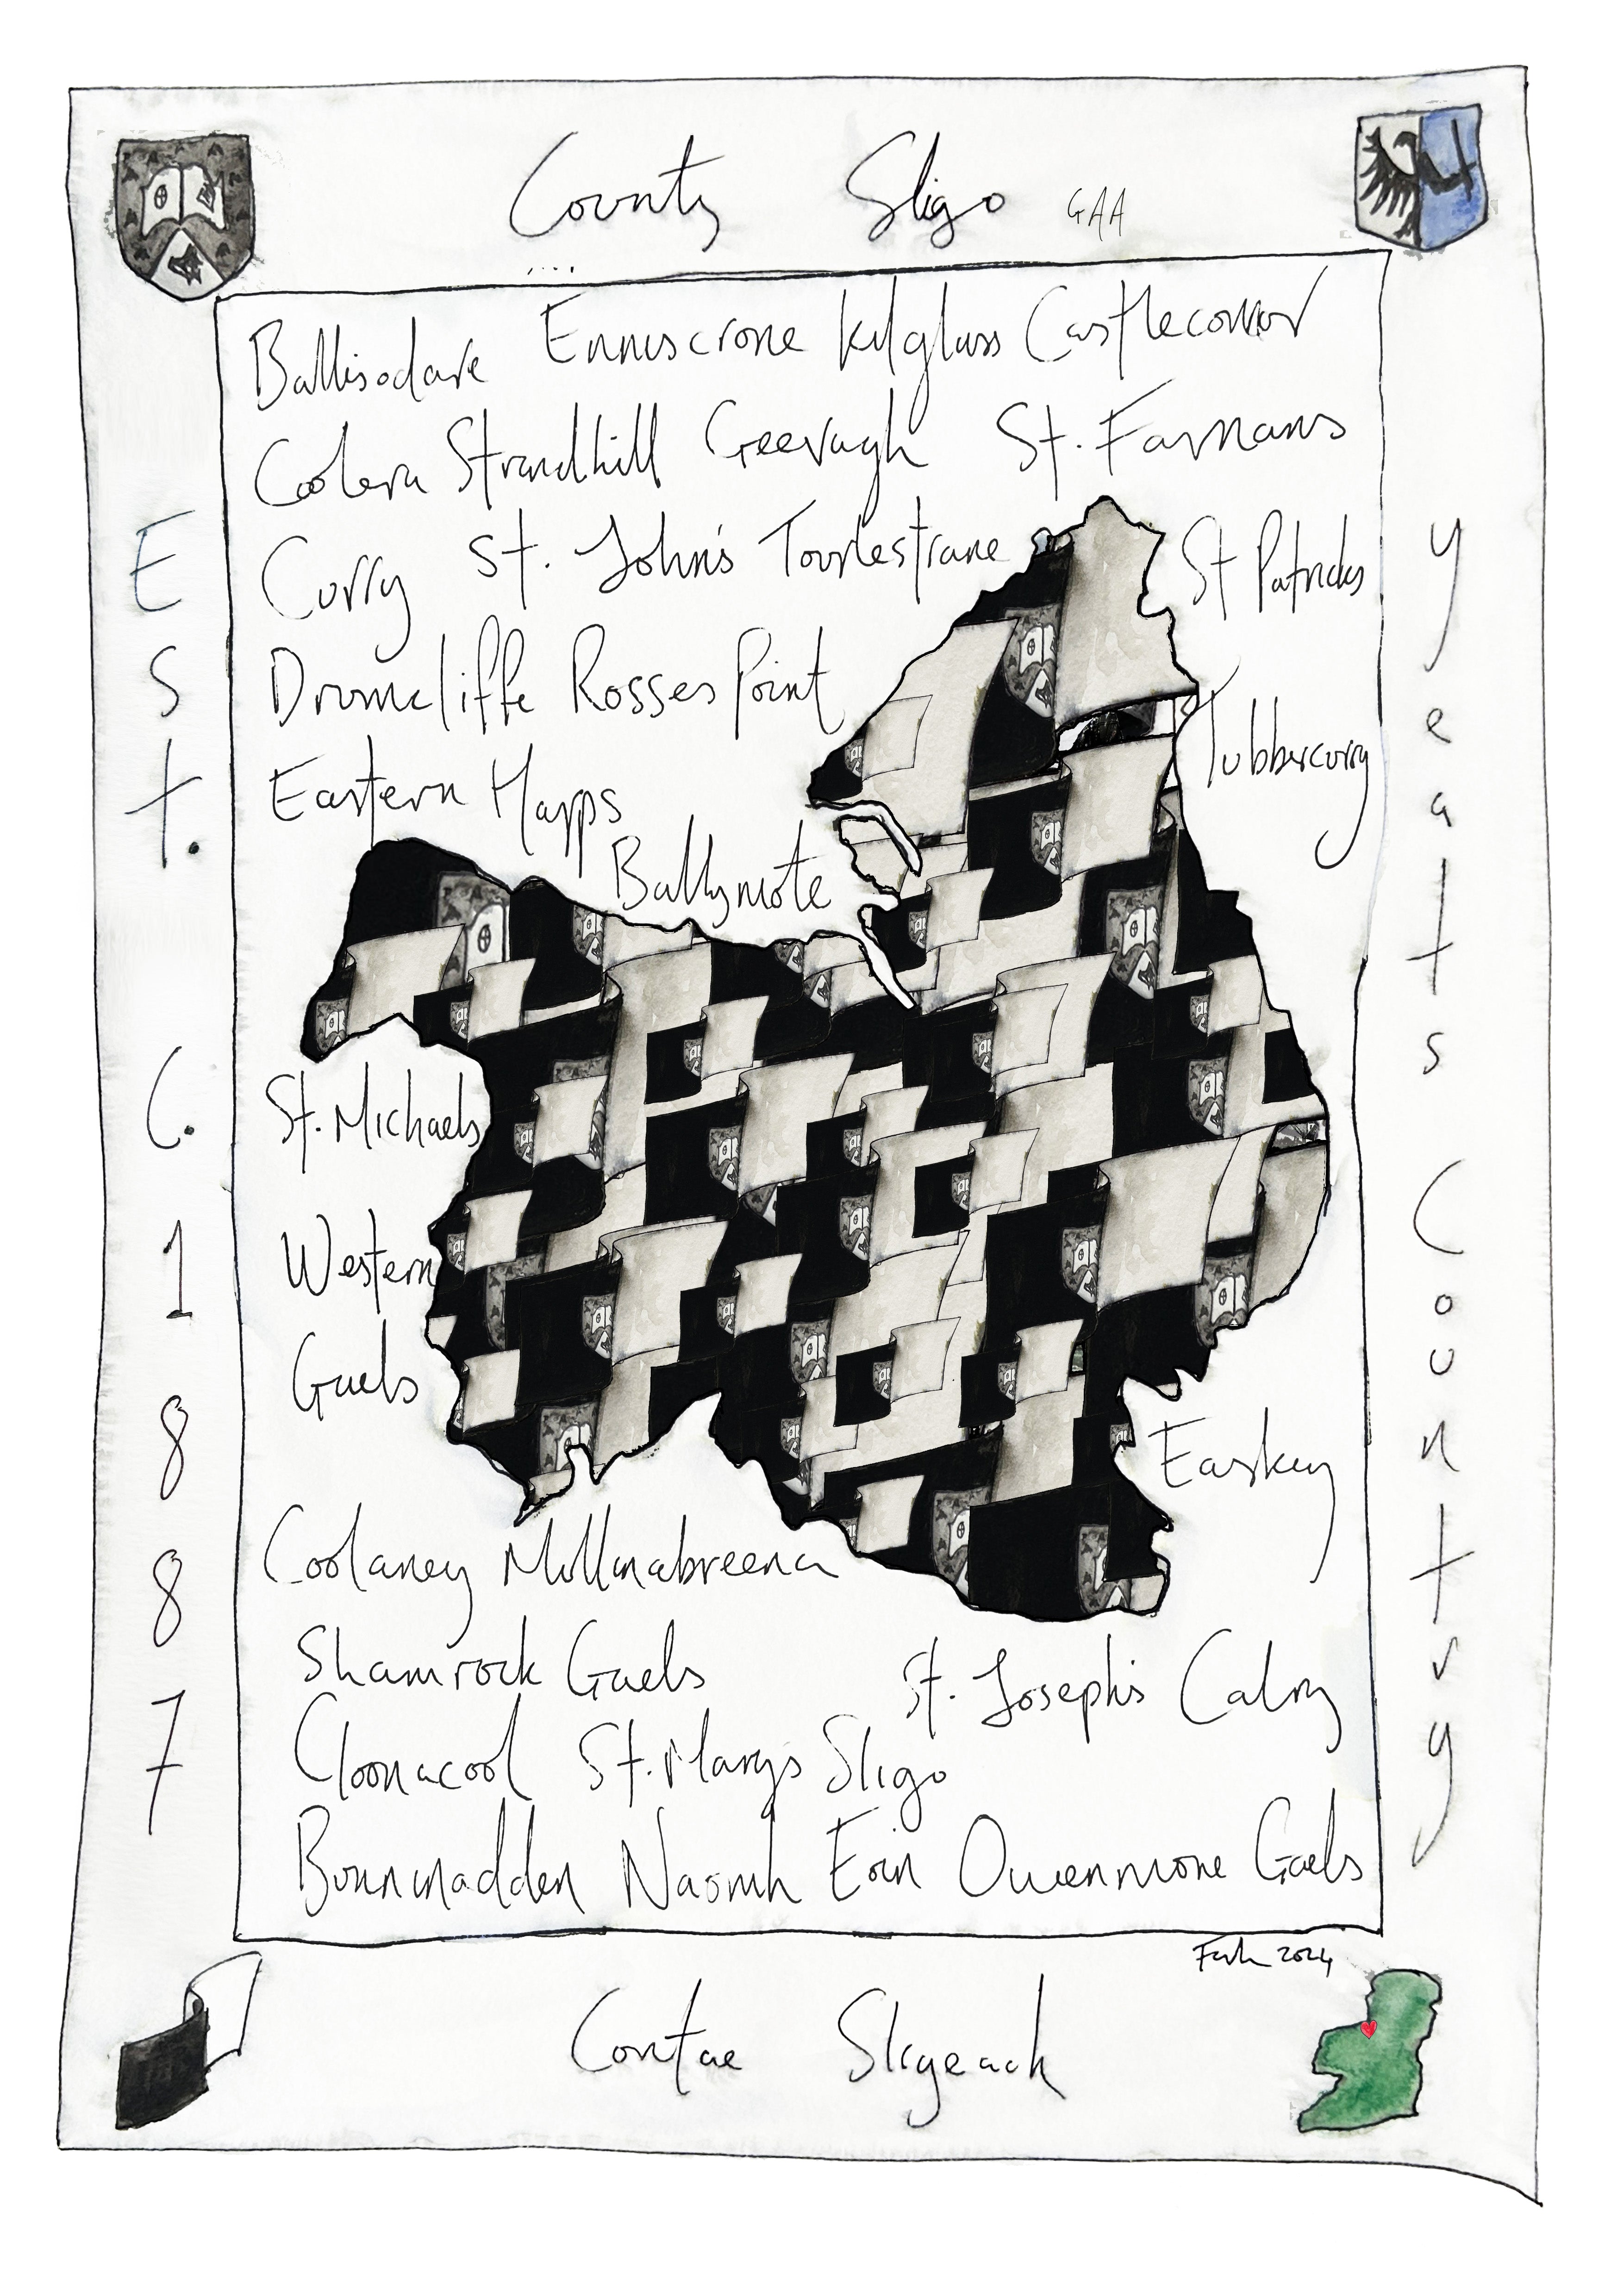 County Sligo GAA
Ballisodare Enniscrone Kilglass Castleconnor
Coolera Strandhill Geevagh St. Farnans
Curry St. John's Tourlestrane
St Patricks
Drumcliffe Rosses Point
Tubbercurry
Eastern Harps
Ballymote
St. Michaels
Western
Gaels
Easkey
Coolaney Mullinabreena
Shamrock Gaels
St. Joseph's Calry
Cloonacool St. Marys Sligo
Bunninadden Naomh Eoin Owenmore Gaels
Est. C. 1887
Yeats Country
2024
Contae Sligeach